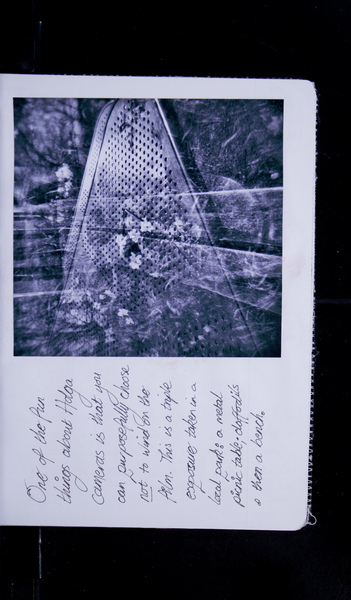 One of the fun
things about Holga
cameras is that you
can purposefully choose
not to wind on the
film. This is a triple
exposure taken in a
local park: a metal
picnic table, daffodils
& then a bench.